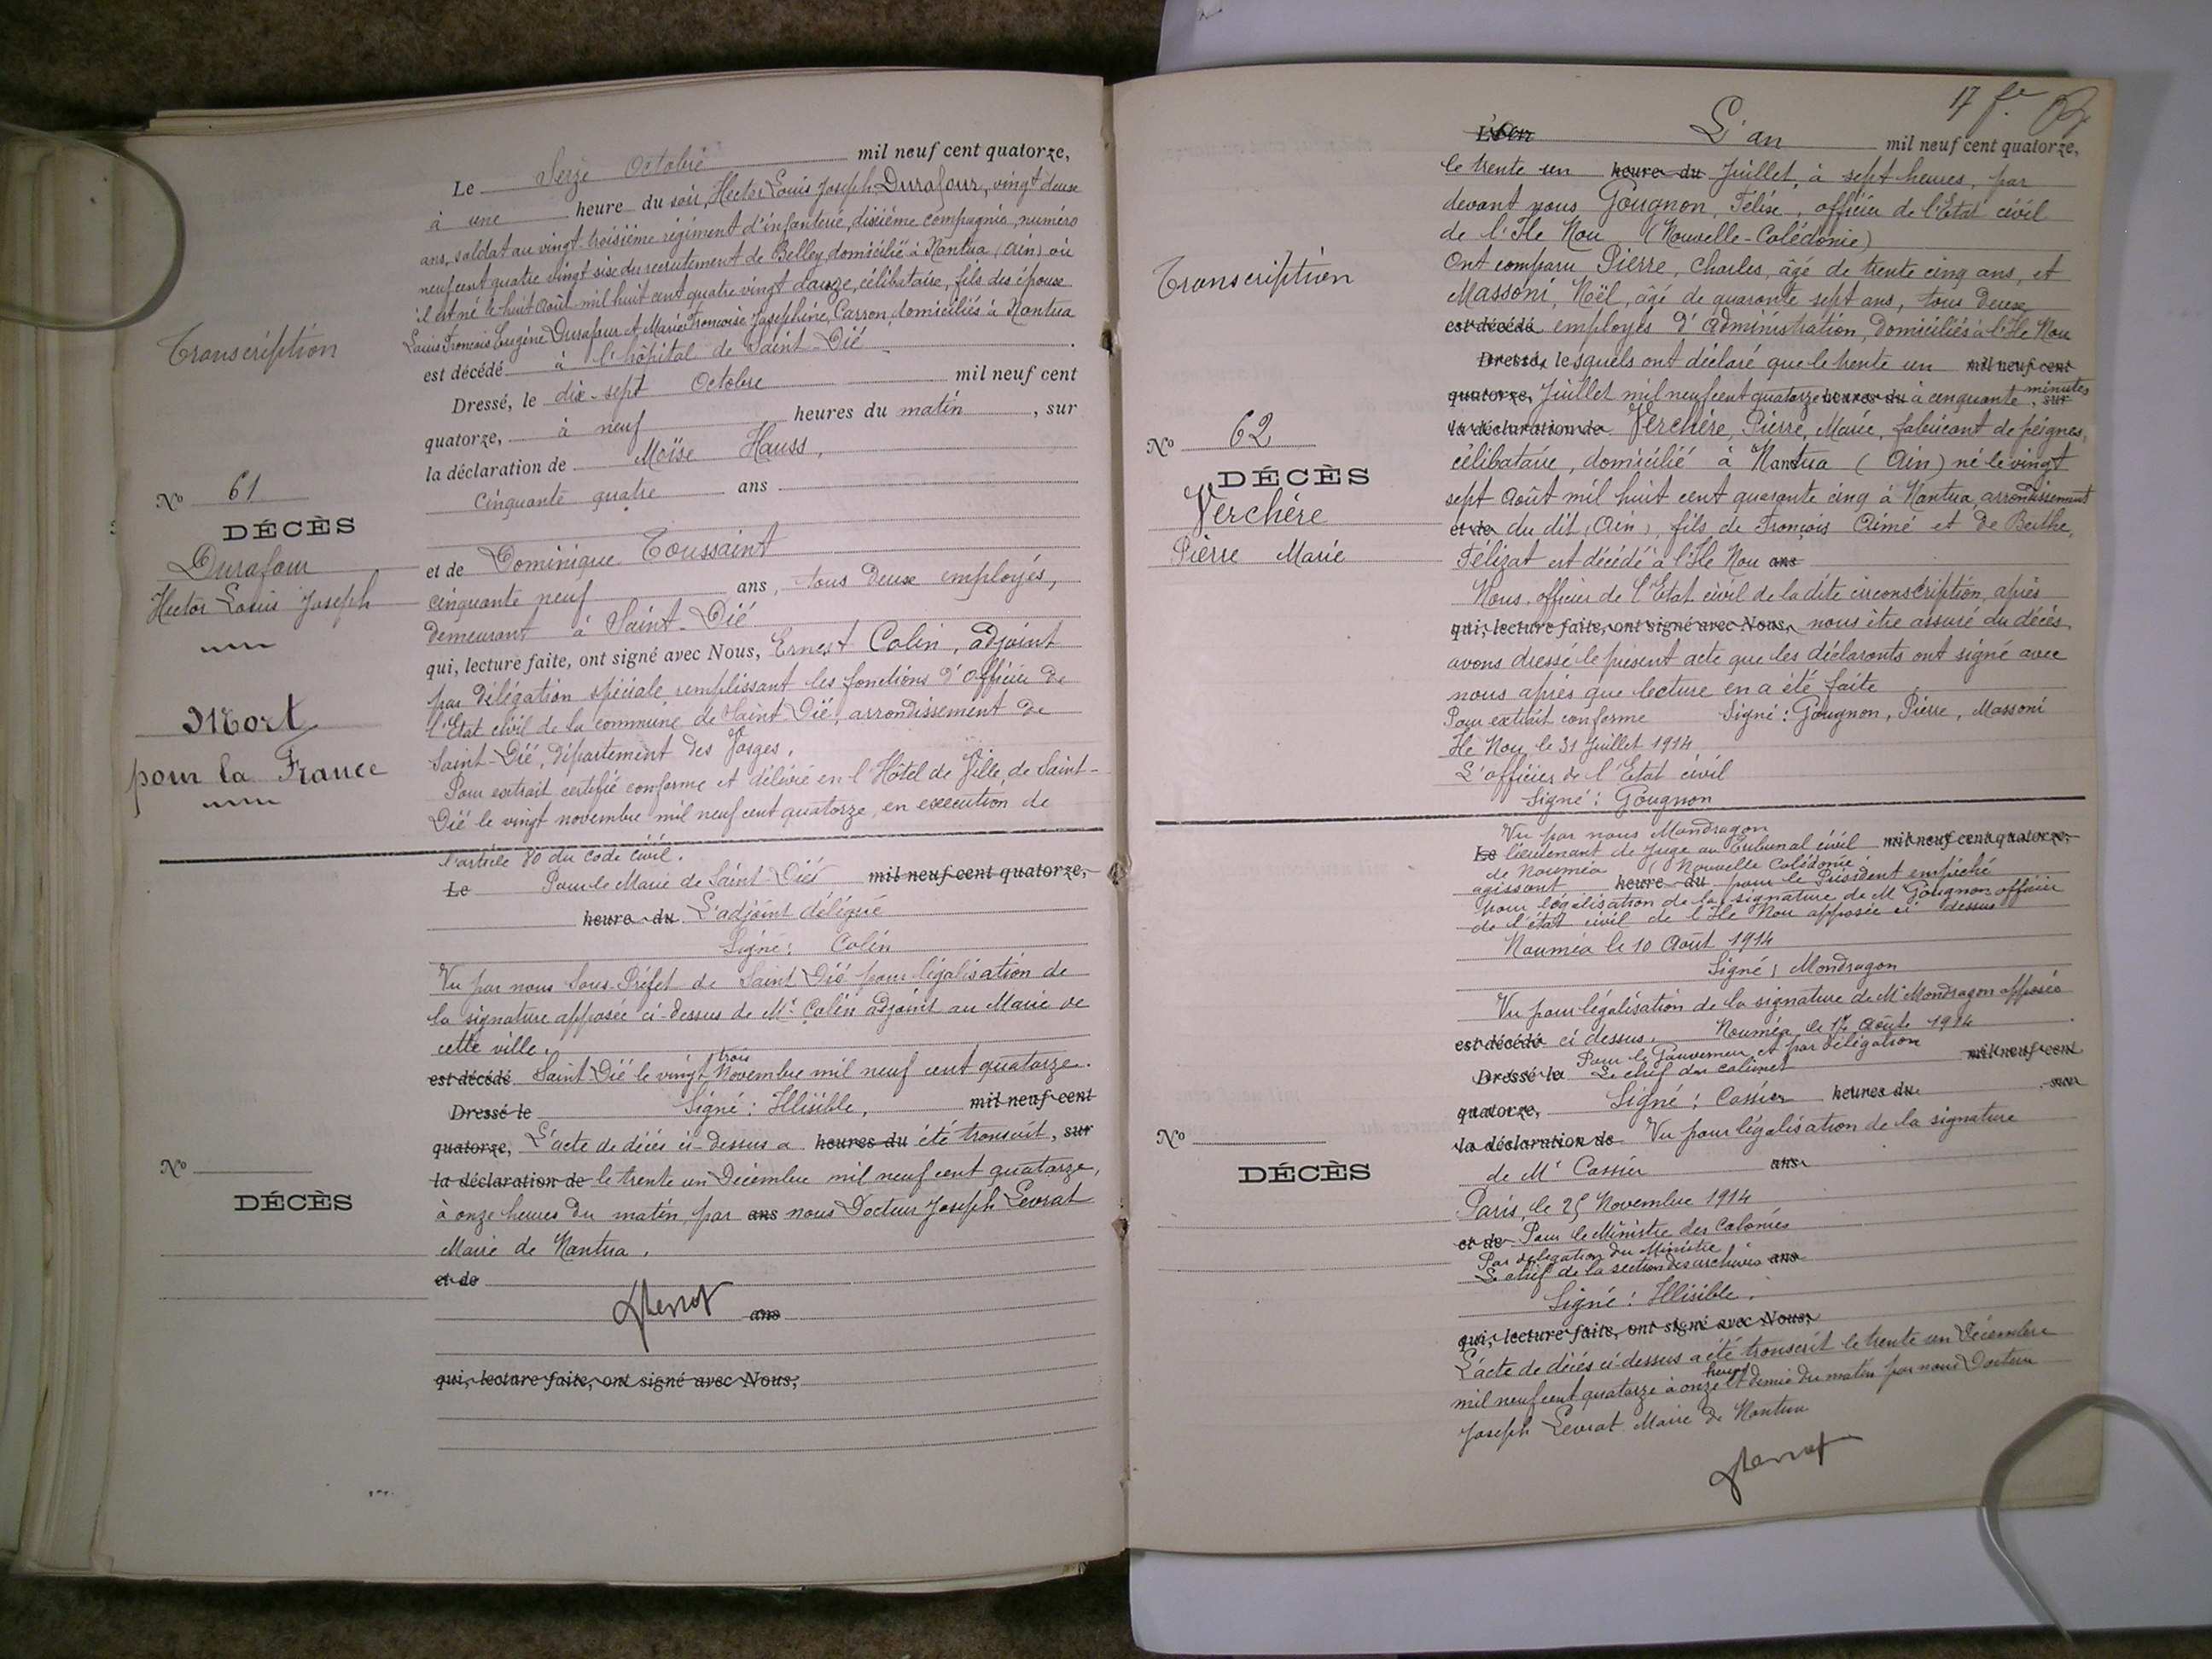 Transcription
Nº 61
DÉCÈS
Durafour
Hector Louis Joseph
Mort
pour la France
Le Seize Octobre mil neuf cent quatorze,
à une heure du soir, Hector Louis Joseph Durafour, vingt deux
ans, soldat au vingt-troisième régiment d'infanterie, dixième compagnie, numéro
neuf cent quatre vingt six du recrutement de Belley, domicilié à Nantua (Ain) où
il est né le huit Août mil huit cent quatre vingt douze, célibataire, fils des époux
Louis François Eugène Durafour et Marie Françoise Joséphine Carron, domiciliés à Nantua
est décédé à l'hôpital de Saint-Dié.
Dressé, le dix-sept Octobre mil neuf cent
quatorze, à neuf heures du matin, sur
la déclaration de Moïse Hauss,
Cinquante quatre ans
et de Dominique Toussaint
cinquante neuf ans, tous deux employés,
demeurant à Saint-Dié
qui, lecture faite, ont signé avec Nous, Ernest Colin, adjoint
par délégation spéciale remplissant les fonctions d'Officier de
l'Etat civil de la commune de Saint Dié, arrondissement de
Saint-Dié, département des Vosges.
Pour extrait certifié conforme et délivré en l'Hôtel de Ville, de Saint-
Dié le vingt novembre mil neuf cent quatorze, en exécution de
l'article 80 du Code civil.
Le Pour le Maire de Saint-Dié mil neuf cent quatorze,
heure du L'adjoint délégué
Signé: Colin
Vu par nous Sous-Préfet de Saint Dié pour légalisation de
la signature apposée ci-dessus de Mr Colin adjoint au Maire de
cette ville.
est décédé Saint Dié le vingt trois Novembre mil neuf cent quatorze.
Dressé le Signé: Illisible, mil neuf cent
quatorze, L'acte de décès ci-dessus a heures du été transcrit, sur
la déclaration de le trente un Décembre mil neuf cent quatorze,
à onze heures du matin, par ans nous Docteur Joseph Levrat
Maire de Nantua.
et de
ans
qui, lecture faite, ont signé avec Nous,
Nº
DÉCÈS
17
Transcription
Nº 62
DÉCÈS
Verchère
Pierre Marie
L'an mil neuf cent quatorze,
le trente un heure du Juillet, à sept heures, par
devant nous Gougnon, Félix, officier de l'Etat civil
de l'Ile Nou (Nouvelle-Calédonie)
Ont comparu Pierre, Charles, âgé de trente cinq ans, et
Massoni, Noël, âgé de quarante sept ans, tous deux
est décédé employés d'administration, domiciliés à l'Ile Nou
Dressé, lesquels ont déclaré que le trente un mil neuf cent
quatorze, Juillet mil neuf cent quatorze heures du à cinquante minutes, sur
la déclaration de Verchère, Pierre, Marie, fabricant de peignes,
célibataire, domicilié à Nantua (Ain) né le vingt
sept Août mil huit cent quarante cinq à Nantua, arrondissement
et de du dit (Ain), fils de François Aimé et de Berthe,
Félizat est décédé à l'Ile Nou ans
Nous, officier de l'Etat civil de la dite circonscription, après
qui, lecture faite, ont signé avec Nous, nous être assuré du décès,
avons dressé le présent acte que les déclarants ont signé avec
nous après que lecture en a été faite
Pour extrait conforme Signé: Gougnon, Pierre, Massoni
Ile Nou, le 31 Juillet 1914
L'officier de l'Etat civil
Signé: Gougnon
Vu par nous Mondragon
Le lieutenant de Juge au Tribunal civil mil neuf cent quatorze,
de Nouméa (Nouvelle Calédonie)
agissant heure du pour le Président empêché
pour légalisation de la signature de M Gougnon officier
de l'état civil de l'Ile Nou apposée ci dessus
Nouméa le 10 Août 1914
Signé: Mondragon
Vu pour légalisation de la signature de Mr Mondragon apposée
est décédé ci dessus. Nouméa, le 17 Août 1914
Pour le Gouverneur et par délégation
Dressé le Le chef du cabinet mil neuf cent
quatorze, Signé: Cassier heures du sur
la déclaration de Vu pour légalisation de la signature
de Mr Cassier ans
Paris, le 25 Novembre 1914
et de Pour le Ministre des Colonies
Par délégation du Ministre
Le chef de la section des archives ans
Signé: Illisible.
qui, lecture faite, ont signé avec Nous,
L'acte de décès ci-dessus a été transcrit le trente un Décembre
mil neuf cent quatorze à onze heures et demie du matin par nous Docteur
Joseph Levrat Maire de Nantua
Nº
DÉCÈS